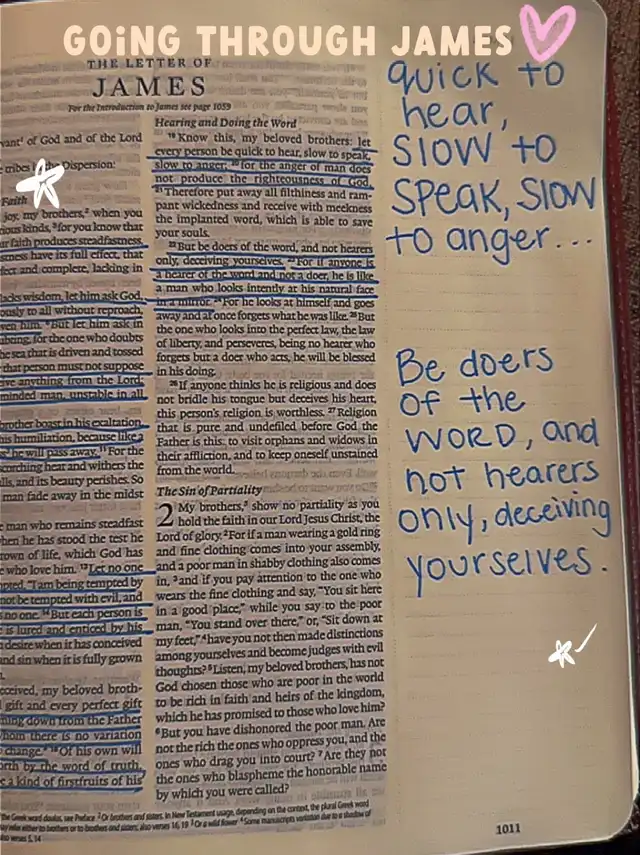 GOING THROUGH JAMES
THE LETTER OF
JAMES
For the Introduction to James see page 1059
vant¹ of God and of the Lord
tribes the Dispersion:
Faith
joy, my brothers,² when you
ious kinds, ³for you know that
ur faith produces steadfastness.
stness have its full effect, that
fect and complete, lacking in
lacks wisdom, let him ask God,
ously to all without reproach,
ven him. ⁶But let him ask in
for the one who doubts
he sea that is driven and tossed
that person must not suppose
ve anything from the Lord;
minded man, unstable in all
brother boast in his exaltation,
his humiliation, because like a
he will pass away. ¹¹For the
corching heat and withers the
lls, and its beauty perishes. So
man fade away in the midst
e man who remains steadfast
hen he has stood the test he
rown of life, which God has
who love him. ¹³Let no one
mpted, "I am being tempted by
not be tempted with evil, and
s no one. ¹⁴But each person is
is lured and enticed by his
desire when it has conceived
and sin when it is fully grown
eceived, my beloved broth-
l gift and every perfect gift
ming down from the Father
hom there is no variation
change. ¹⁸Of his own will
orth by the word of truth,
e a kind of firstfruits of his
Hearing and Doing the Word
¹⁹Know this, my beloved brothers: let
every person be quick to hear, slow to speak,
slow to anger; ²⁰for the anger of man does
not produce the righteousness of God.
²¹Therefore put away all filthiness and ram-
pant wickedness and receive with meekness
the implanted word, which is able to save
your souls.
²²But be doers of the word, and not hearers
only, deceiving yourselves. ²³For if anyone is
a hearer of the word and not a doer, he is like
a man who looks intently at his natural face
in a mirror. ²⁴For he looks at himself and goes
away and at once forgets what he was like. ²⁵But
the one who looks into the perfect law, the law
of liberty, and perseveres, being no hearer who
forgets but a doer who acts, he will be blessed
in his doing.
²⁶If anyone thinks he is religious and does
not bridle his tongue but deceives his heart,
this person's religion is worthless. ²⁷Religion
that is pure and undefiled before God the
Father is this: to visit orphans and widows in
their affliction, and to keep oneself unstained
from the world.
The Sin of Partiality
2 My brothers,⁵ show no partiality as you
hold the faith in our Lord Jesus Christ, the
Lord of glory. ²For if a man wearing a gold ring
and fine clothing comes into your assembly,
and a poor man in shabby clothing also comes
in, ³and if you pay attention to the one who
wears the fine clothing and say, "You sit here
in a good place," while you say to the poor
man, "You stand over there," or, "Sit down at
my feet," ⁴have you not then made distinctions
among yourselves and become judges with evil
thoughts? ⁵Listen, my beloved brothers, has not
God chosen those who are poor in the world
to be rich in faith and heirs of the kingdom,
which he has promised to those who love him?
⁶But you have dishonored the poor man. Are
not the rich the ones who oppress you, and the
ones who drag you into court? ⁷Are they not
the ones who blaspheme the honorable name
by which you were called?
the Greek word doulos, see Preface ²Or brothers and sisters. In New Testament usage, depending on the context, the plural Greek word
may refer either to brothers or to brothers and sisters; also verses 16, 19 ³Or a wild flower ⁴Some manuscripts variation due to a shadow of
also verses 5, 14
1011
quick to
hear,
slow to
speak, slow
to anger...
Be doers
of the
WORD, and
not hearers
only, deceiving
yourselves.